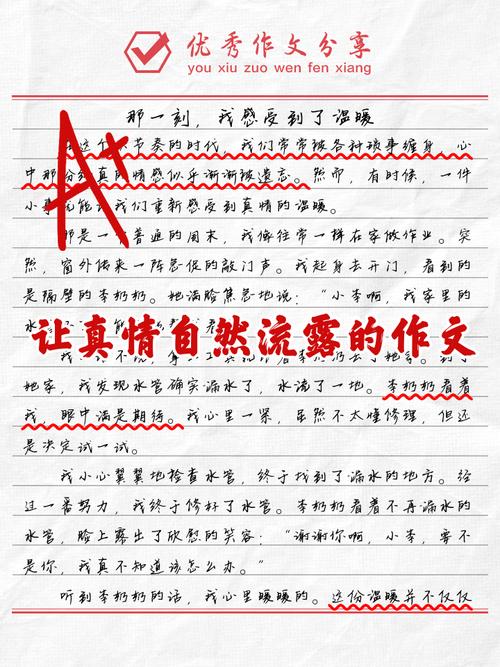 优秀作文分享
you xiu zuo wen fen xiang
那一刻，我感受到了温暖
A+
节奏的时代，我们常常被各种琐事缠身，心
中那份 真的情感似乎渐渐被遗忘。然而，有时候，一件
小事 能 我们重新感受到真情的温暖。
那是一 普通的周末，我像往常一样在家做作业。突
然，窗外传来一阵急促的敲门声。我起身去开门，看到的
是隔壁的李奶奶。她满脸焦急地说：“小李啊，我家里的
水
让真情自然流露的作文
她家，我发现水管确实漏水了，水流了一地。李奶奶看着
我，眼中满是期待。我心里一紧，虽然不太懂修理，但还
是决定试一试。
我小心翼翼地检查水管，终于找到了漏水的地方。经
过一番努力，我终于修好了水管。李奶奶看着不再漏水的
水管，脸上露出了欣慰的笑容：“谢谢你啊，小李，要不
是你，我真不知道该怎么办。”
听到李奶奶的话，我心里暖暖的。这份温暖并不仅仅